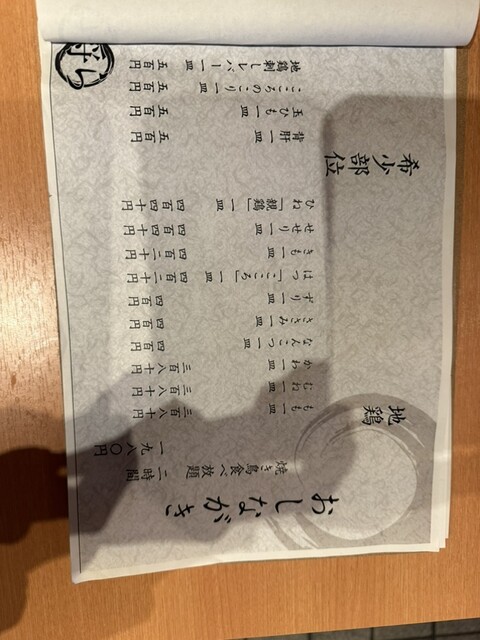 おしながき
焼き鳥食べ放題 二時間
一九八〇円
地鶏
もも一皿 三百八十円
むね一皿 三百八十円
かわ一皿 三百八十円
なんこつ一皿 四百円
ささみ一皿 四百円
ずり一皿 四百円
はつ「こころ」一皿 四百二十円
きも一皿 四百二十円
せせり一皿 四百四十円
ひね「親鶏」一皿 四百四十円
希少部位
背肝一皿 五百円
玉ひも一皿 五百円
こころのこり一皿 五百円
地鶏刺しレバー一皿 五百円